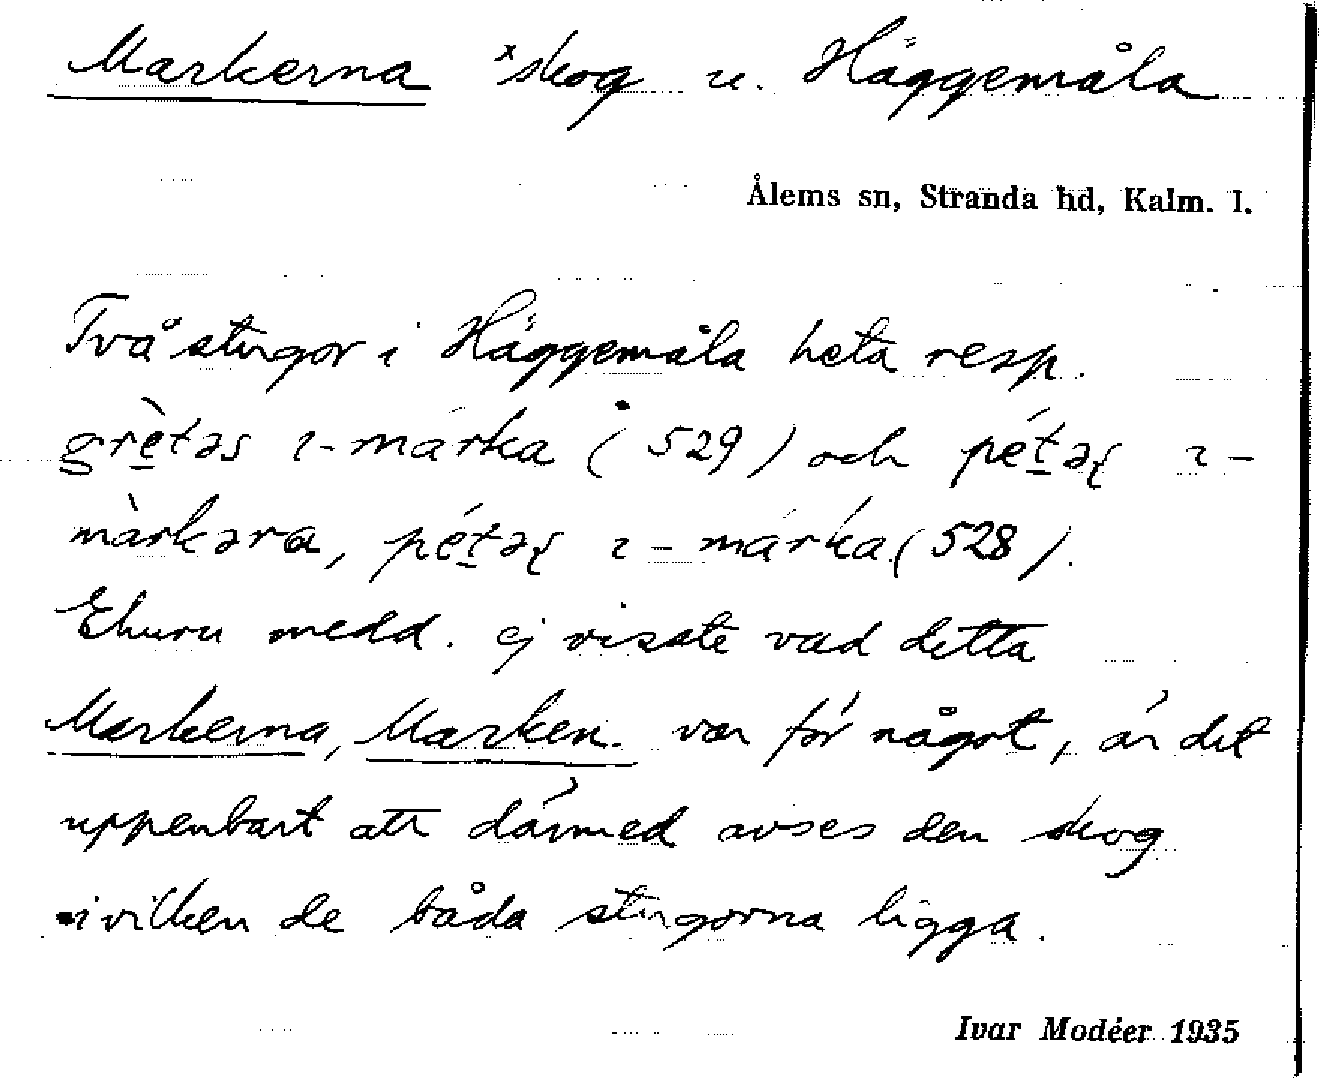 Markerna ˣskog u. Häggemåla
Ålems sn, Stranda hd, Kalm. l.
Två stugor i Häggemåla heta resp.
grètəs ɩ-márka (529) och pétəʂ ɩ-
màrkərɑ, pétəʂ ɩ-márka (528).
Ehuru medd. ej visste vad detta
Markerna, Marken. var för något, är det
uppenbart att därmed avses den skog
i vilken de båda stugorna ligga.
Ivar Modéer 1935